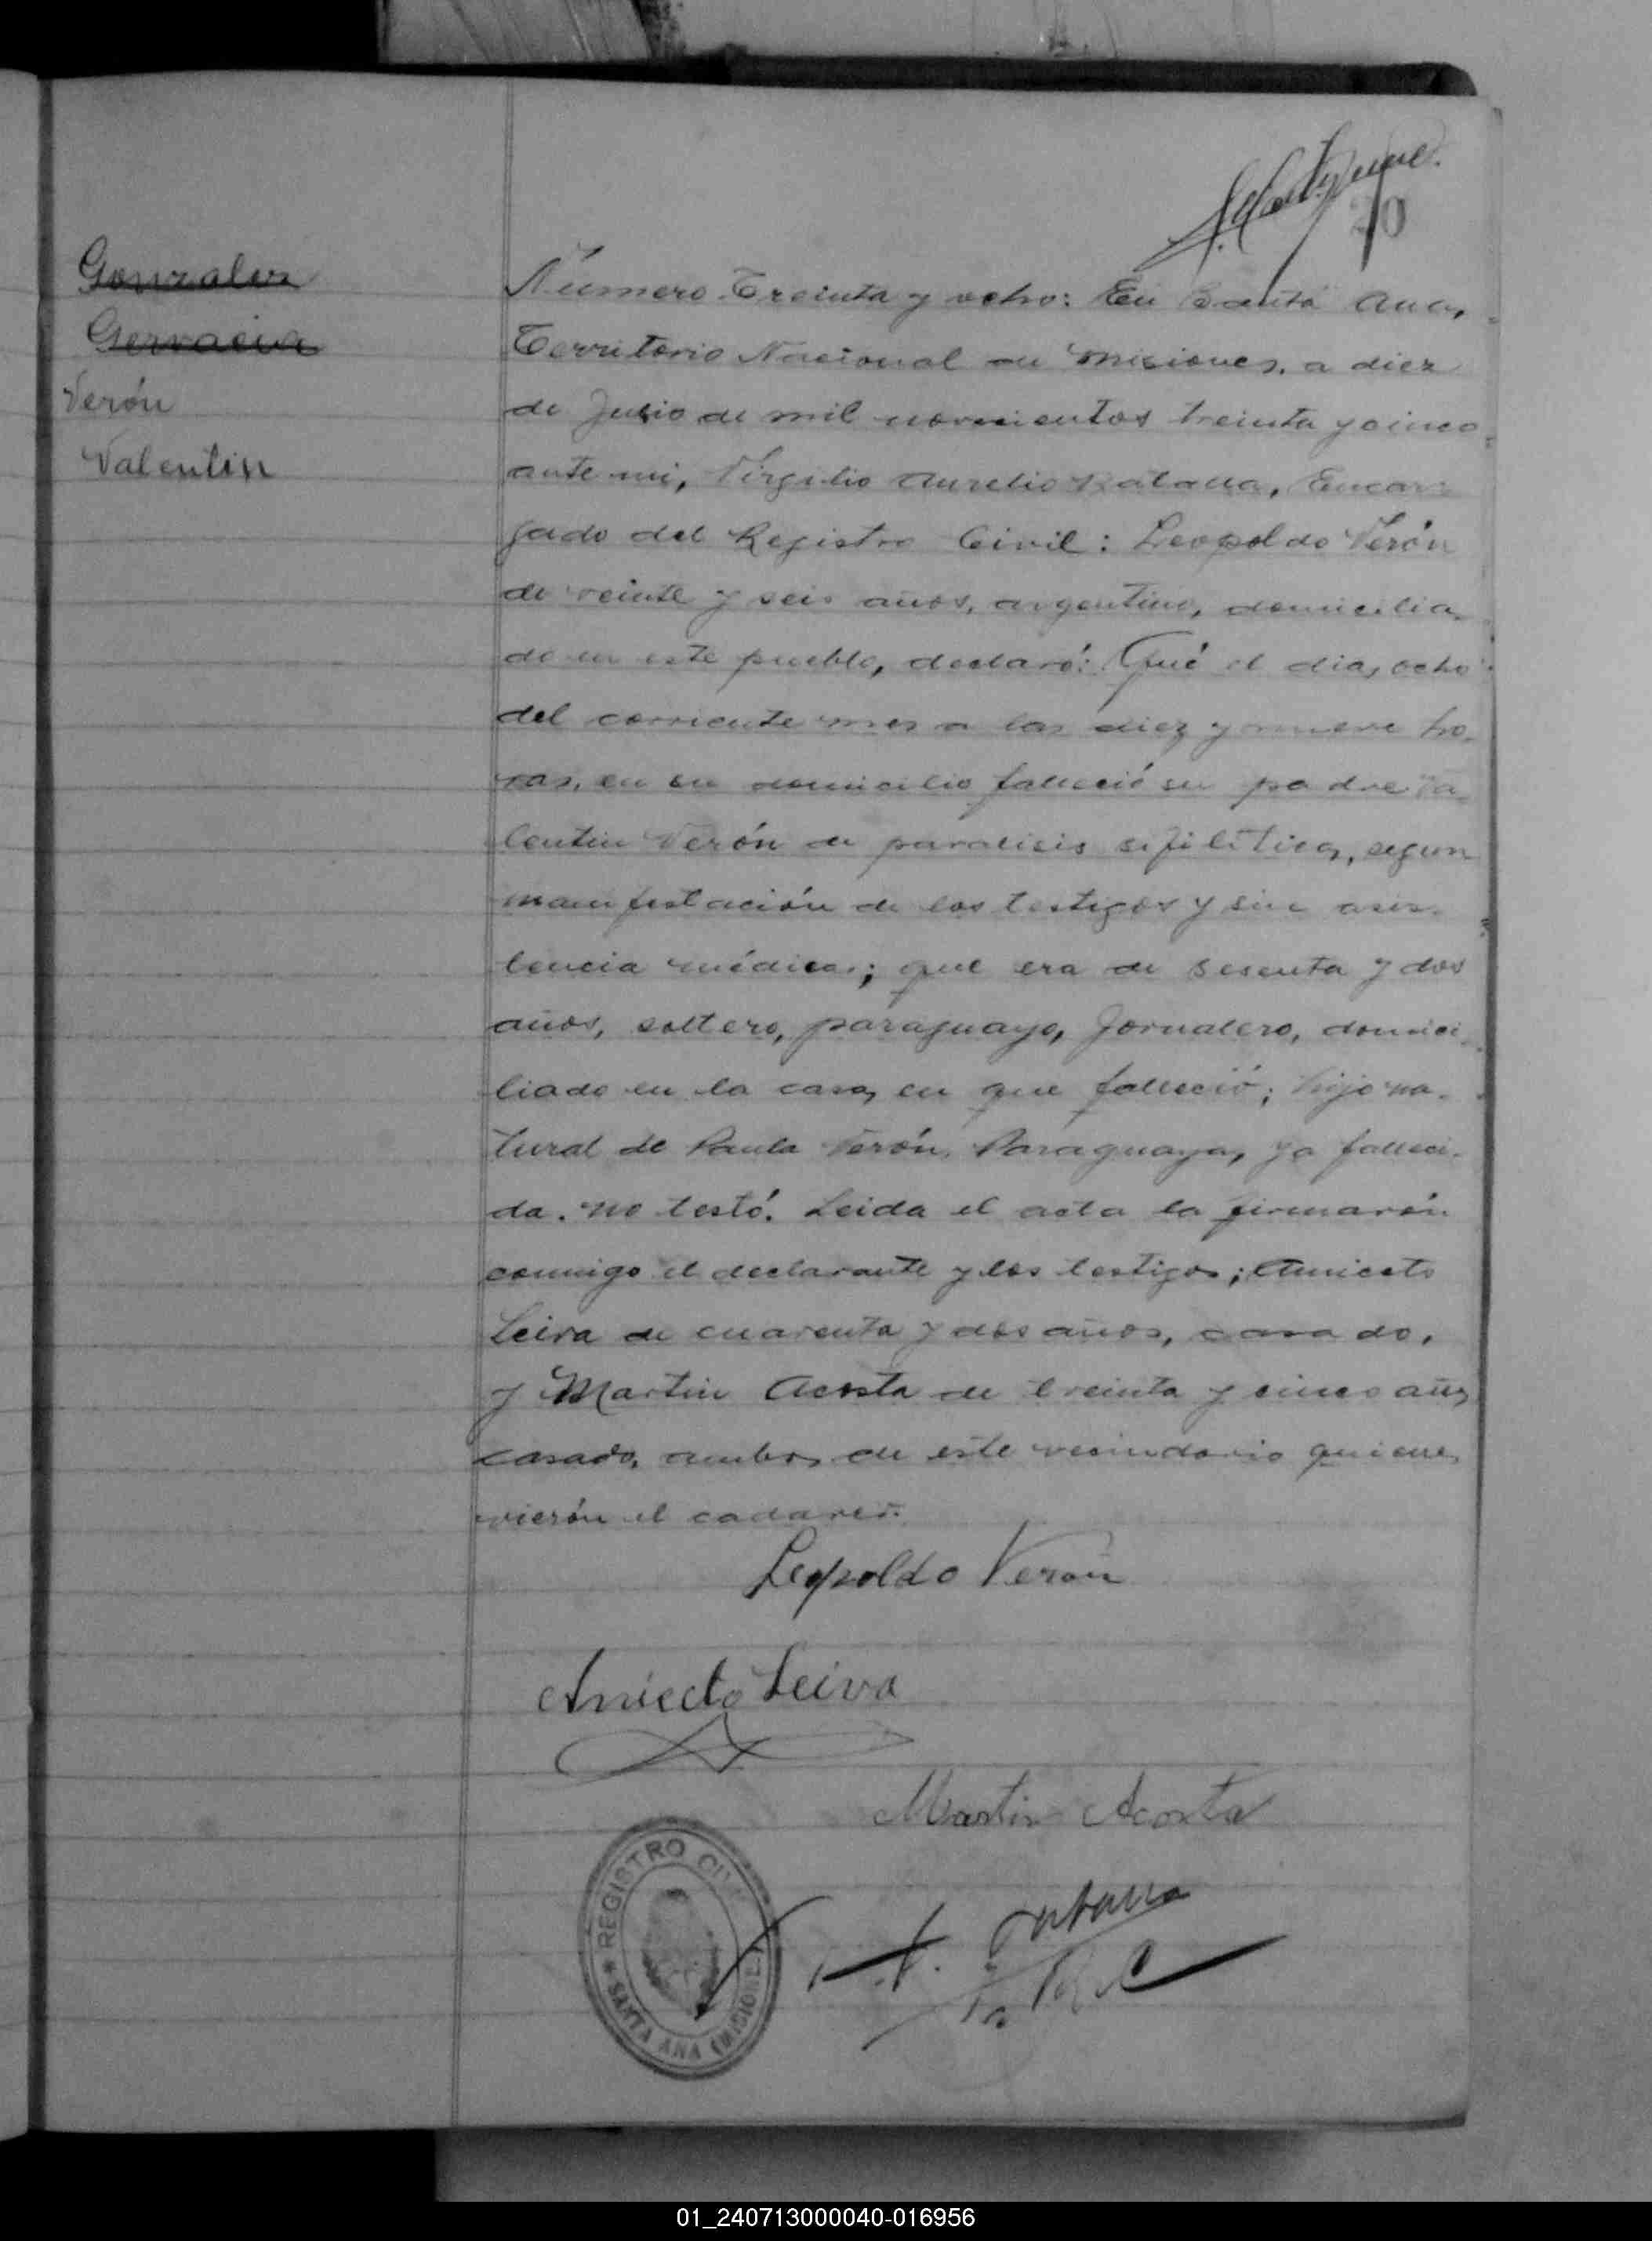 20
Gonzalez
Gervacia
Verón
Valentin
Número Treinta y ocho: En Santa Ana,
Territorio Nacional de Misiones, a diez
de Julio de mil novecientos treinta y cinco
ante mi, Virgilio Aurelio Encar-
gado del Registro Civil: Leopoldo Verón
de veinte y seis años, argentino, domicilia-
do en este pueblo, declaró: Qué el dia, ocho
del corriente mes a las diez y nueve ho-
ras, en su domicilio falleció su padre Va-
lentin Verón de paralisis sifilitica, segun
manifestación de los testigos y sin asis-
tencia médica; que era de sesenta y dos
años, soltero, paraguayo, Jornalero, domici-
liado en la casa, en que falleció; hijo na-
tural de Paula Verón, Paraguaya, ya falleci-
da. No testó. Leida el acta la firmarón
conmigo el declarante y los testigos; Aniceto
Leiva de cuarenta y dos años, casado,
y Martin Acosta de treinta y cinco años
casado, ambos de este vecindario quienes
vierón el cadaver.
Leopoldo Verón
Aniecto Leiva
Martin Acosta
REGISTRO CIVIL
SANTA ANA (MISIONES)
01_240713000040-016956